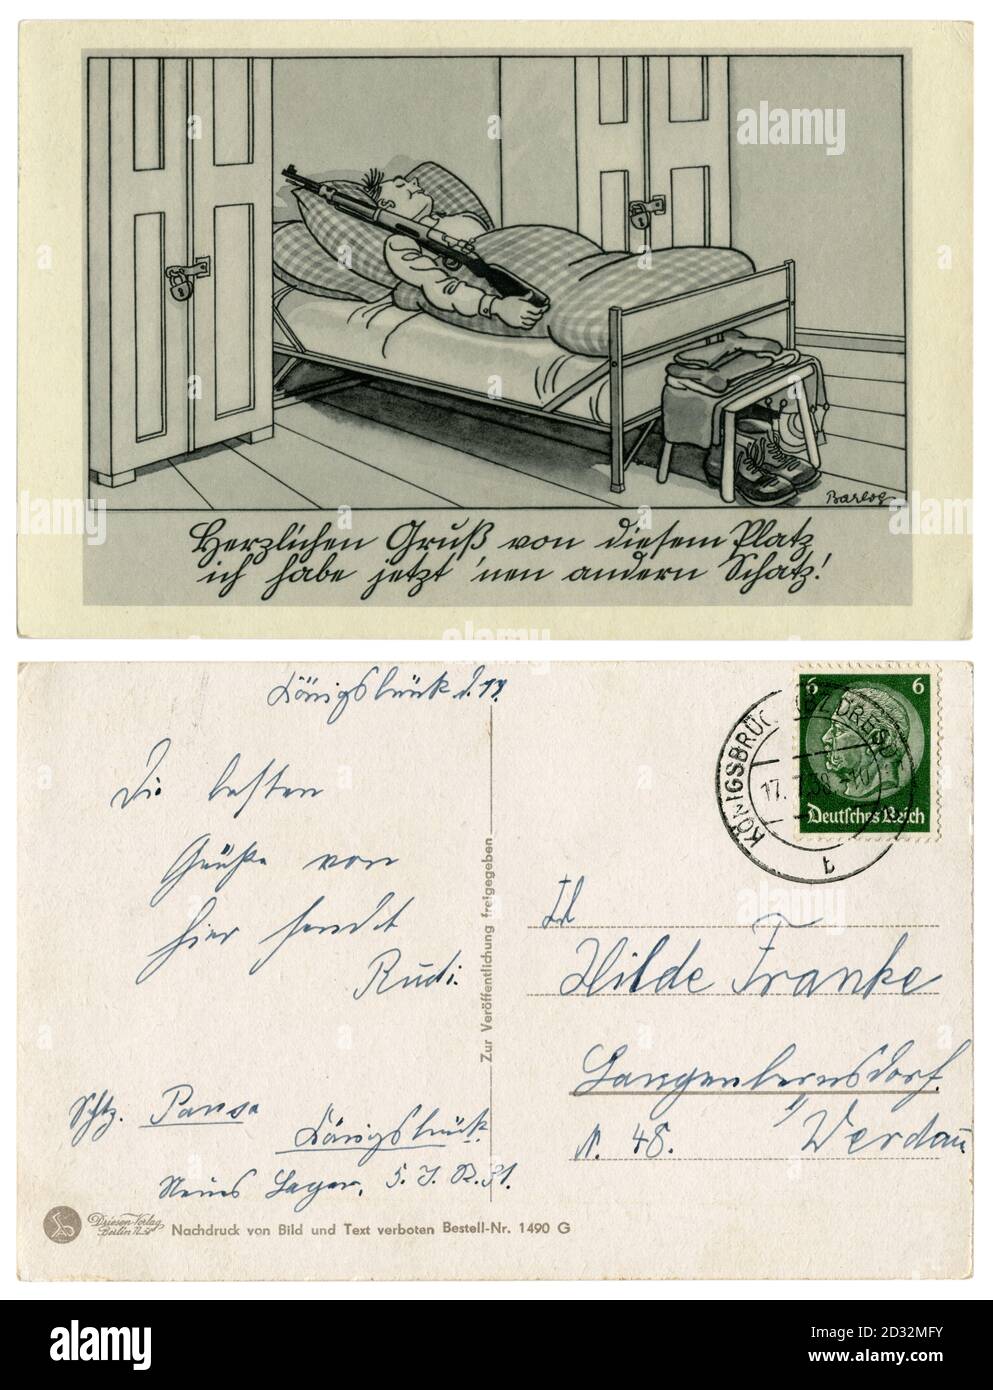 Barlog
Herzlichen Gruß von diesem Platz
ich habe jetzt 'nen andern Schatz!
Königsbrück d. 17.
Die besten
Grüße von
hier sendt
Rudi.
Schtz. Pansa
Königsbrück
Neues Lager, 5. J. R. 31.
Driesen-Verlag
Berlin
Nachdruck von Bild und Text verboten Bestell-Nr. 1490 G
Zur Veröffentlichung freigegeben
6 6
Deutsches Reich
KÖNIGSBRÜCK DRESD
17. 38
b
Hilde Franke
Langenbernsdorf.
N. 48. Werdau
alamy
Image ID: D32MFY
www.alamy.com